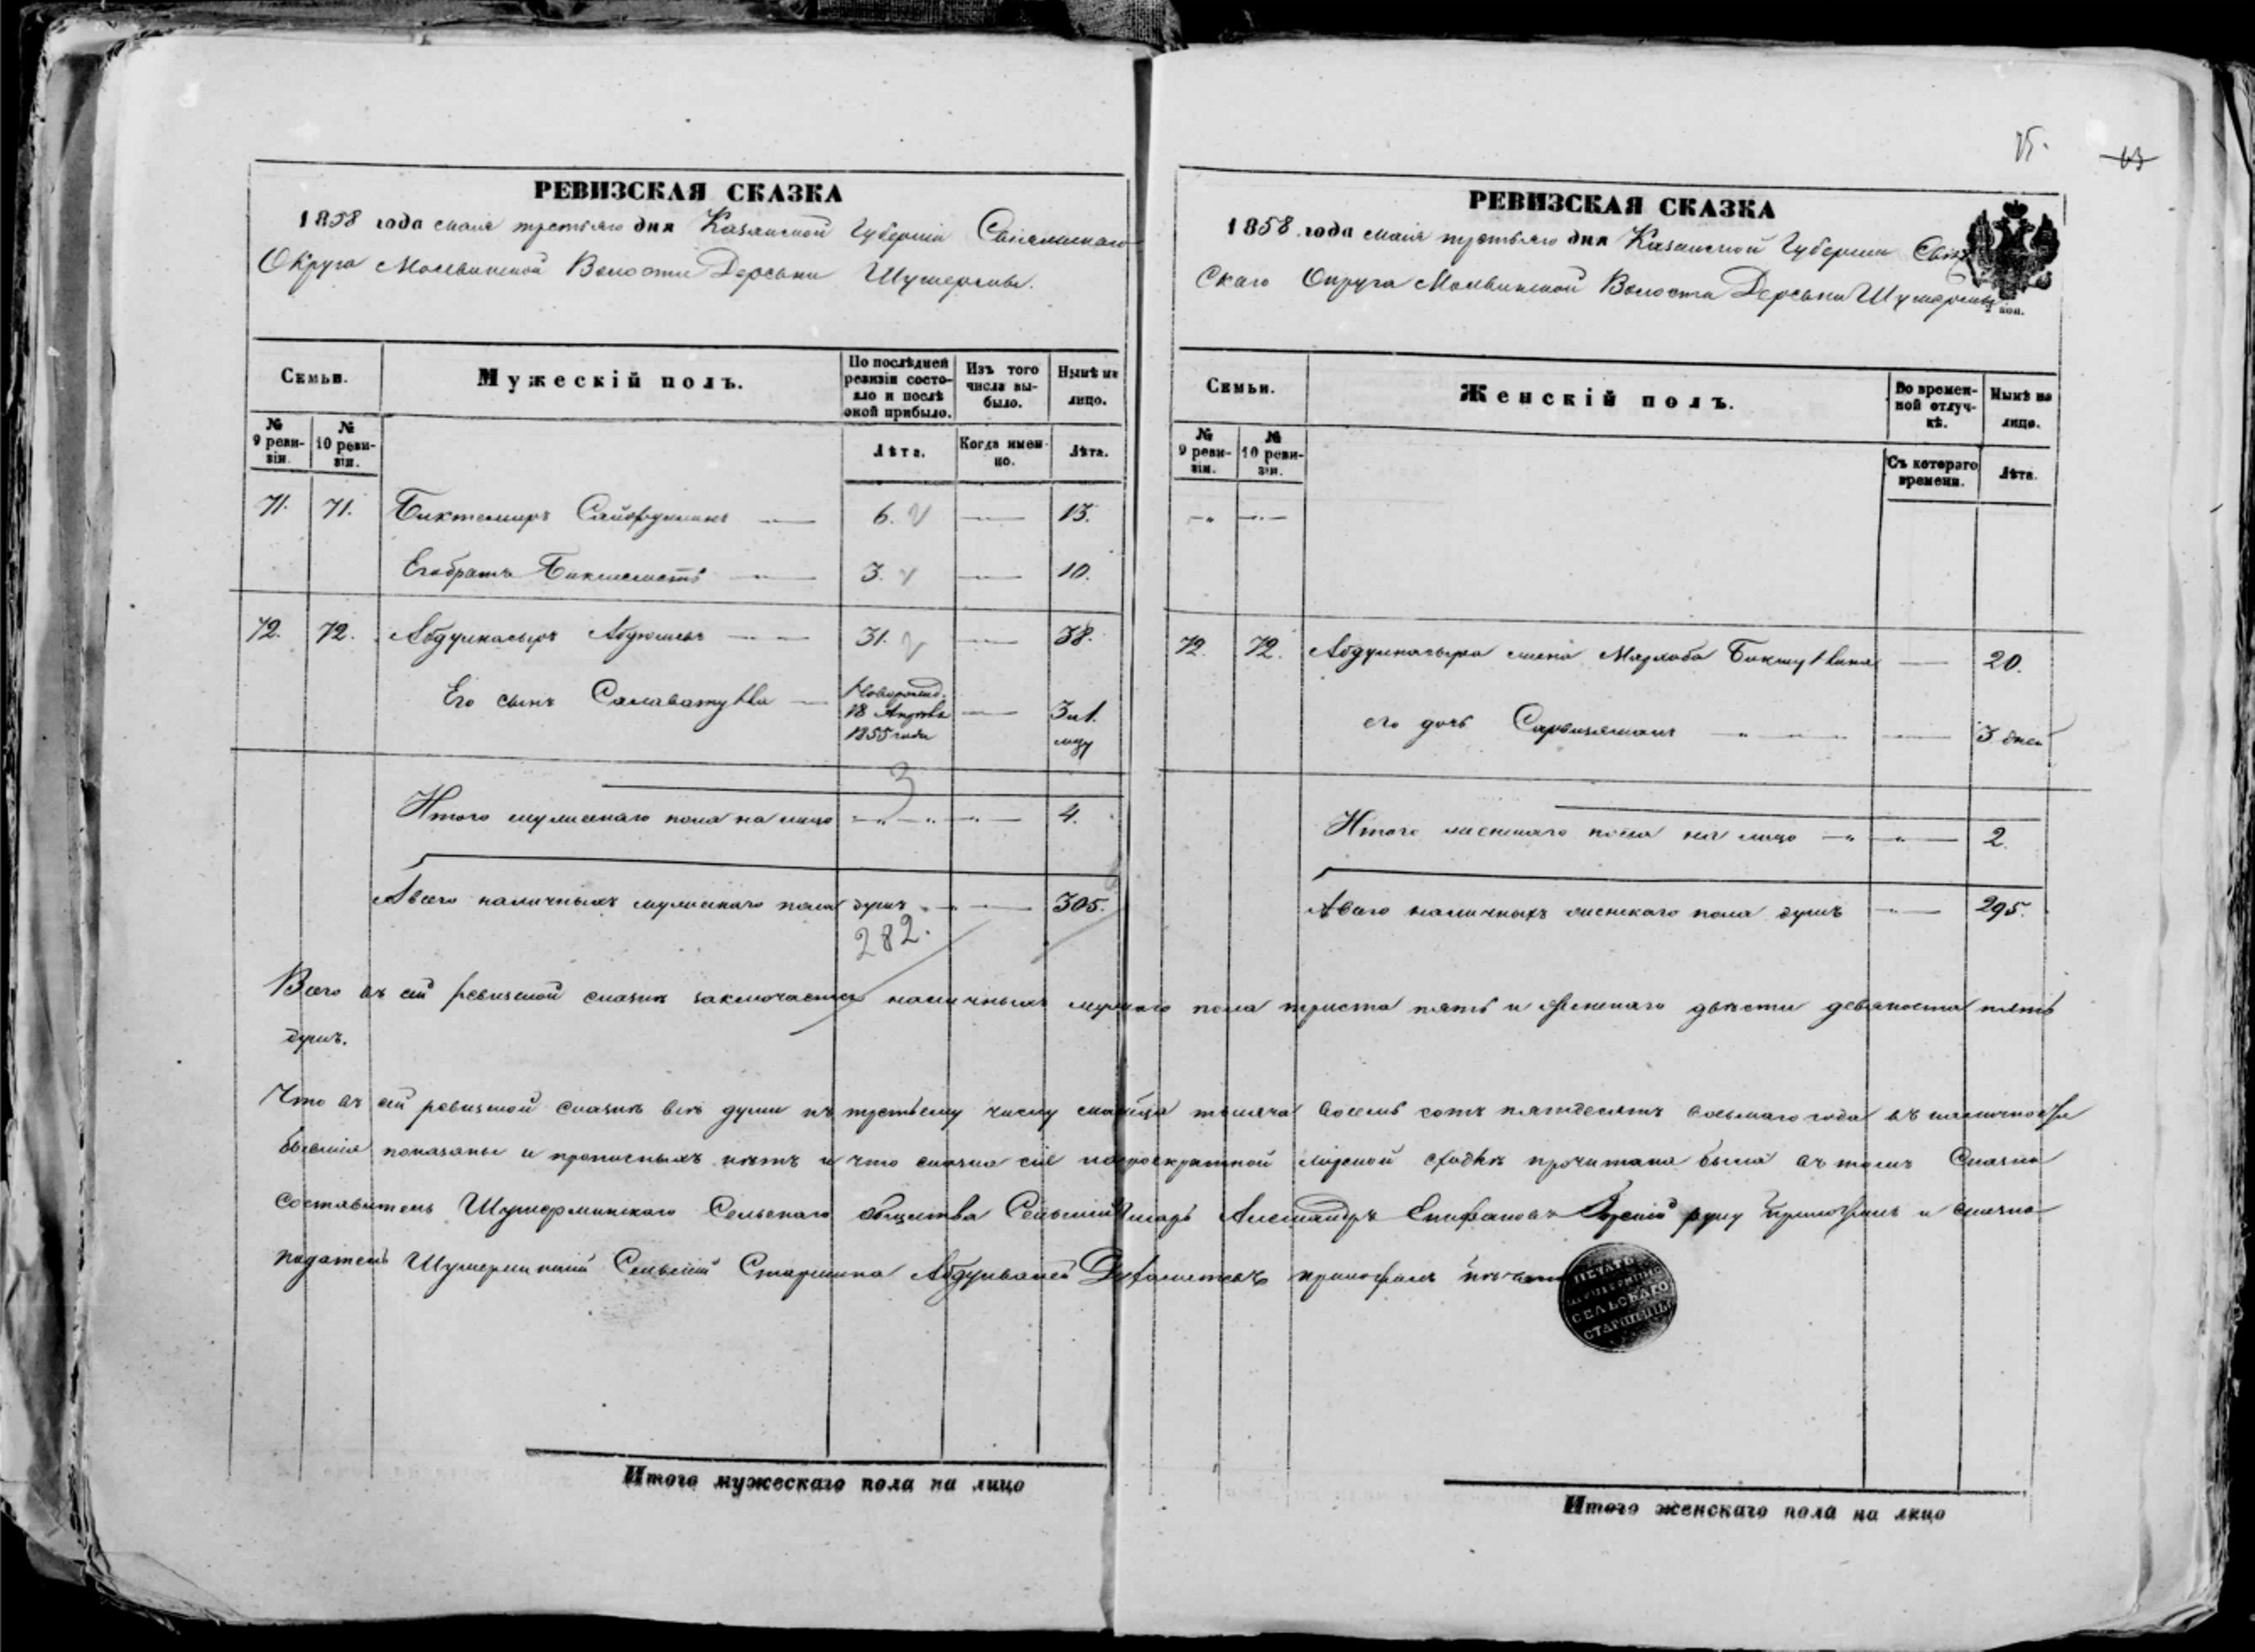 РЕВИЗСКАЯ СКАЗКА
1858 года маія третьяго дня Казанской Губерніи Свіяжскаго
Округа Молвинской Волости Деревни Шушермы.
Семьи.
Мужескій полъ.
По послѣдней ревизіи состояло и послѣ оной прибыло.
Изъ того числа выбыло.
Нынѣ на лицо.
№ 9 ревизіи.
№ 10 ревизіи.
Лѣта.
Когда именно.
Лѣта.
71. 71. Биктемиръ Сайфуллинъ 6. 13.
Его братъ 3. 10.
72. 72. Абдулнасыръ 31. 38.
Его сынъ Салаватулла Новорожд. 18 1855 года 3 и 1. мцу
3
Итого мужескаго пола на лицо 4.
А всего наличныхъ мужескаго пола душъ 305.
282.
75.
63
РЕВИЗСКАЯ СКАЗКА
1858 года маія третьяго дня Казанской Губерніи Свіяж
скаго Округа Молвинской Волости Деревни Шушермы
коп.
Семьи.
Женскій полъ.
Во временной отлучкѣ.
Нынѣ на лицо.
№ 9 ревизіи.
№ 10 ревизіи.
Съ котораго времени.
Лѣта.
72. 72. Абдулнасыра жена 20.
его дочь 3 дней
Итого женскаго пола на лицо 2.
А всего наличныхъ женскаго пола душъ 295.
Всего въ сей ревизской сказкѣ заключается наличныхъ мужскаго пола триста пять и женскаго двѣсти девяноста пять
душъ.
Что въ сей ревизской сказкѣ всѣ души къ третьему числу маія мца тысяча восемь сотъ пятдесятъ восьмаго года въ наличности
бывшія показаны и прописныхъ нѣтъ и что сказка сія на троекратной мірской сходкѣ прочитана была въ томъ Сказко
составитель Шушерминскаго Сельскаго общества Сельскій Писарь Александръ Епифановъ руку приложилъ и сказко
податель Шушерминскій Сельскій Старшина приложилъ печать
ПЕЧАТЬ
СЕЛЬСКАГО
СТАРШИНЫ
Итого мужескаго пола на лицо
Итого женскаго пола на лицо